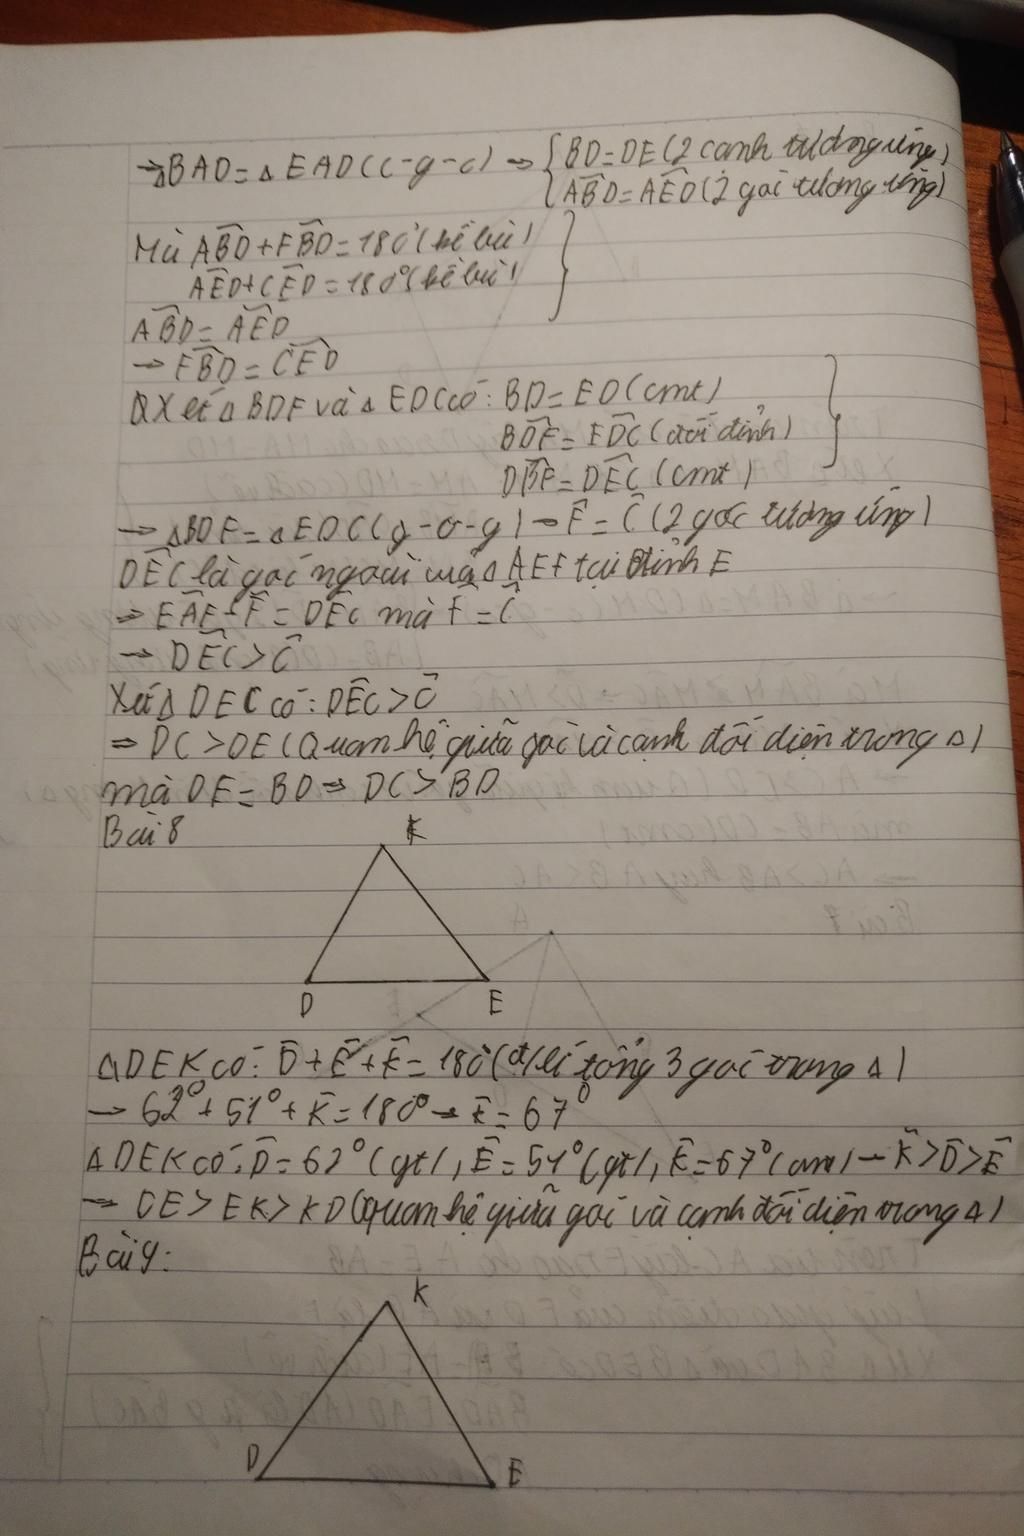 → ΔBAD = Δ EAD (c-g-c) → { BD = DE (2 cạnh tương ứng)
ABD = AED (2 góc tương ứng)
Mà ABD + FBD = 180° (kề bù)
AED + CED = 180° (kề bù)
ABD = AED
→ FBD = CED
Xét Δ BDF và Δ EDC có: BD = ED (cmt)
BDF = EDC (đối đỉnh)
DBF = DEC (cmt)
→ ΔBDF = Δ EDC (g-c-g) → F = C (2 góc tương ứng)
DEC là góc ngoài của Δ AEF tại đỉnh E
→ EAF + F = DEC mà F = C
→ DEC > C
Xét Δ DEC có: DEC > C
→ DC > DE (Quan hệ giữa góc và cạnh đối diện trong Δ)
mà DE = BD → DC > BD
Bài 8
K
D E
ΔDEK có: D + E + K = 180° (đ/lí tổng 3 góc trong Δ)
→ 62° + 51° + K = 180° → K = 67°
Δ DEK có: D = 62° (gt), E = 51° (gt), K = 67° (cm) → K > D > E
→ DE > EK > KD (quan hệ giữa góc và cạnh đối diện trong Δ)
Bài 9:
K
D E